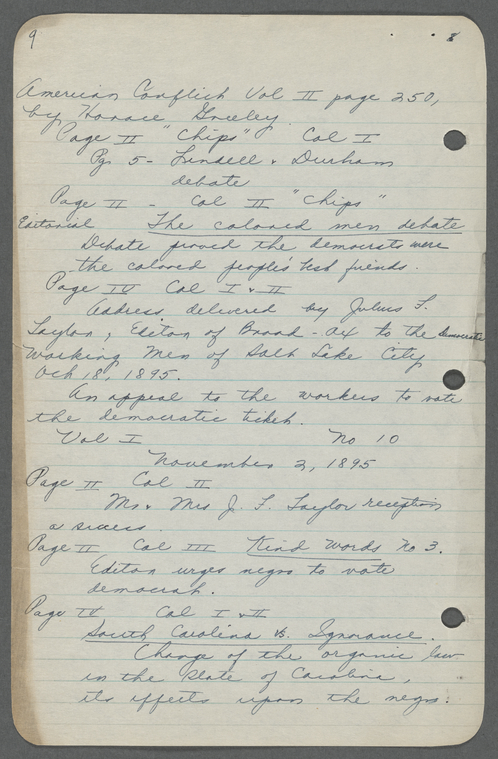 9
American Conflict Vol II page 250,
by Horace Greeley.
Page II "Chips" Col I
Pg. 5 - Lindell & Durham
debate
Page II - Col II "Chips"
Editorial The colored men debate
Debate proved the democrats were
the colored people's best friends.
Page IV Col I & II
Address delivered by Julius F.
Taylor, Editor of Broad-ax to the democratic
Working Men of Salt Lake City
Oct 18, 1895.
An appeal to the workers to vote
the democratic ticket.
Vol I No 10
November 2, 1895
Page II Col II
Mr. & Mrs J. F. Taylor reception
a success.
Page II Col III Kind Words No 3.
Editor urges negro to vote
democrat.
Page IV Col I & II
South Carolina vs. Ignorance.
Change of the organic law
in the State of Carolina,
its effects upon the negro.